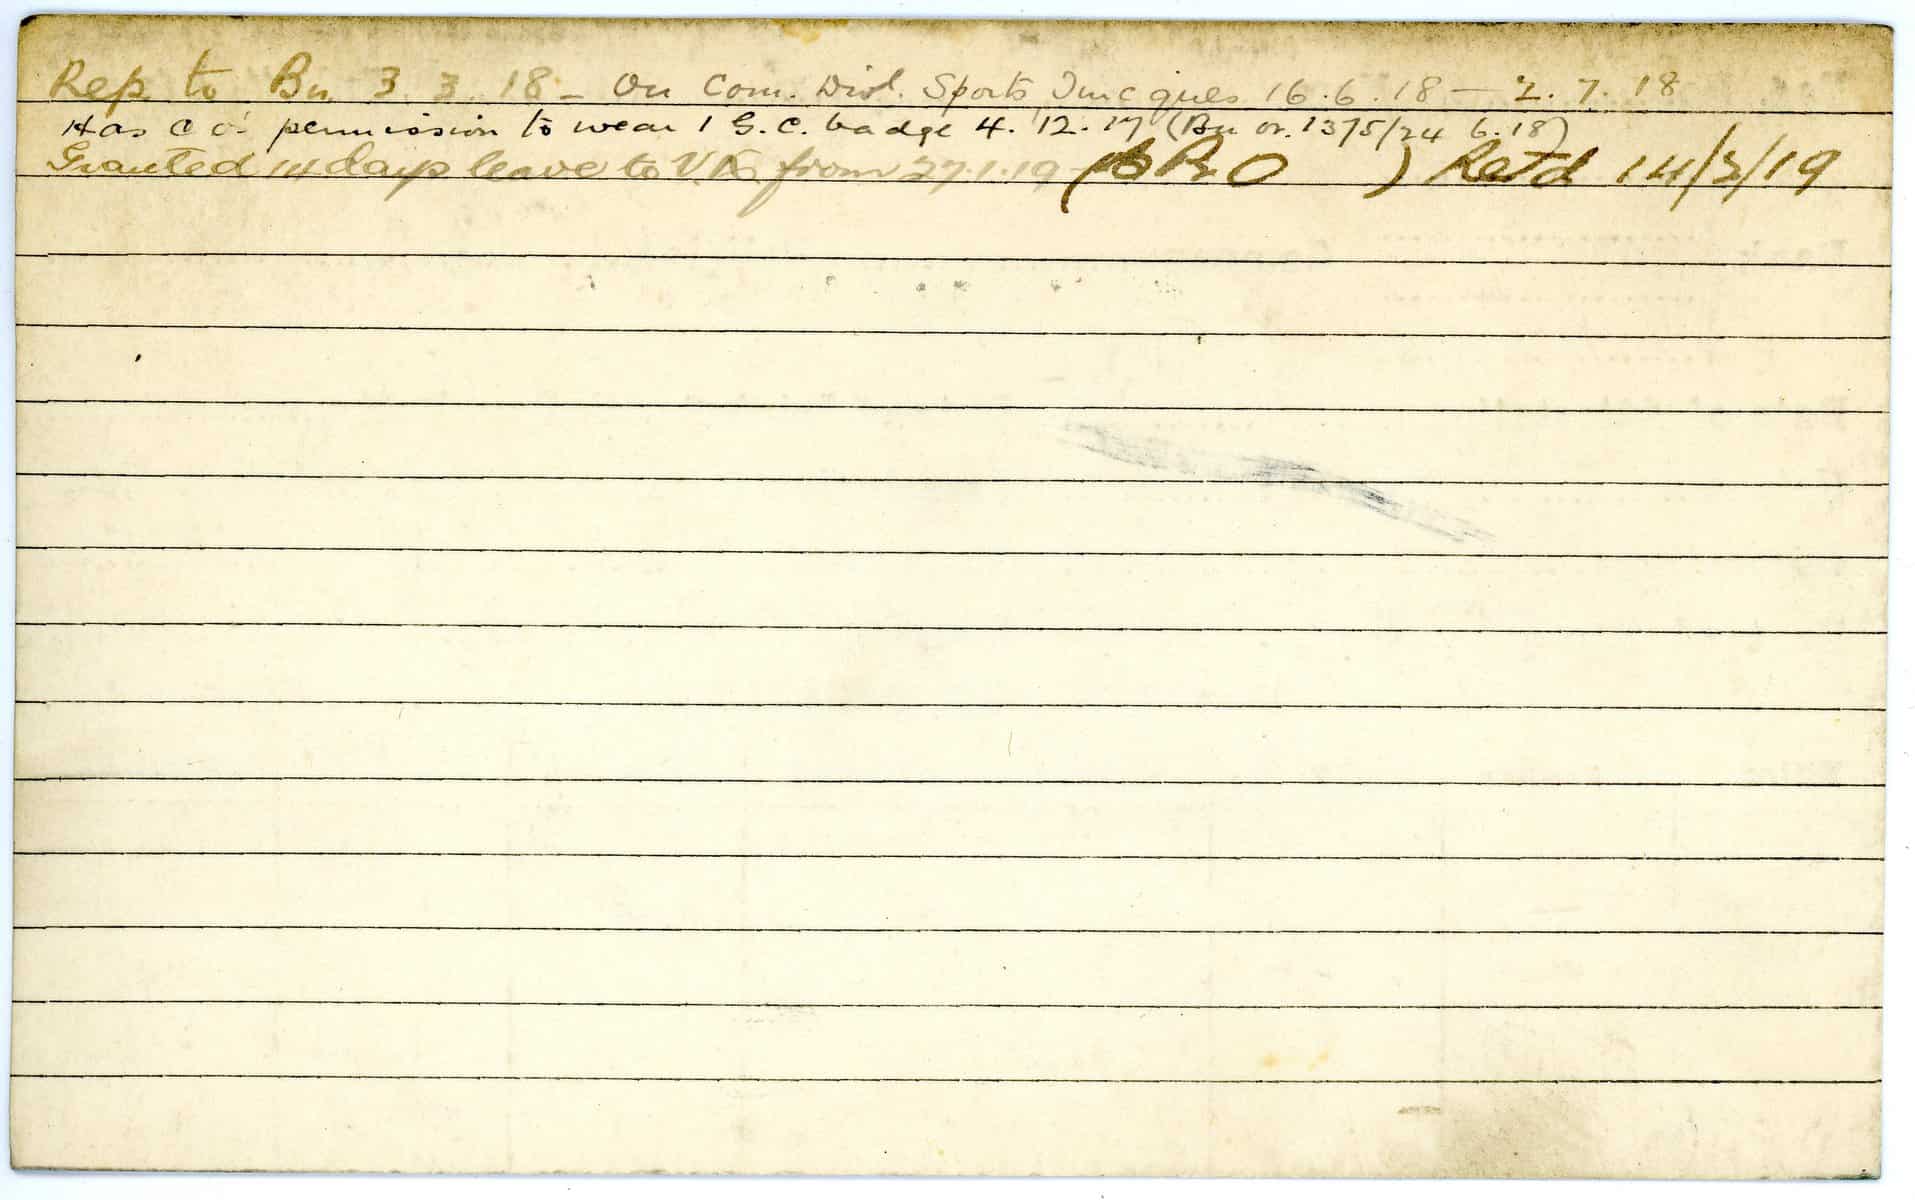 Rep. to Bn. 3.3.18 – On Com. Divl. Sports Tincques 16.6.18 – 2.7.18
Has C O's permission to wear 1 G.C. badge 4.12.17 (Bn or. 1375/24 6.18)
Granted 14 days leave to U.K. from 27.1.19 ( R O ) Ret'd 14/2/19